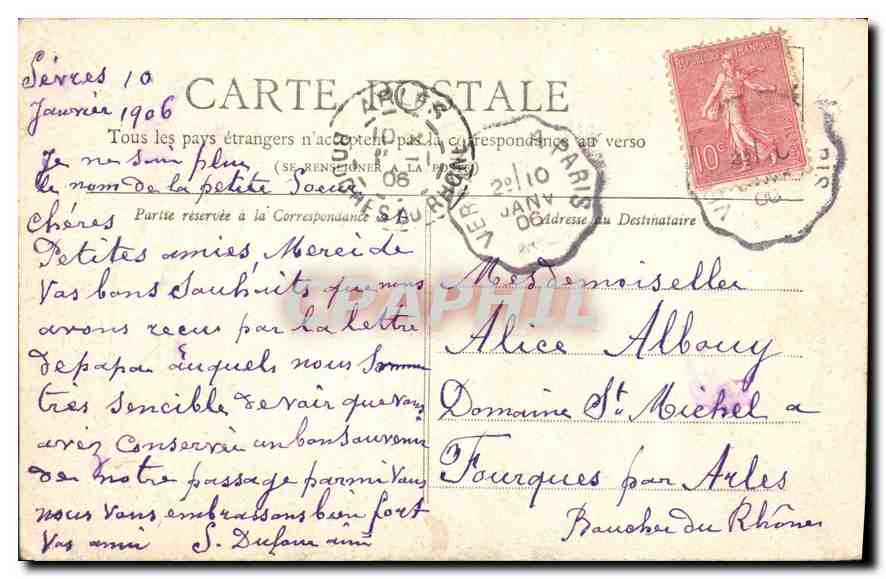 Sèvres 10
Janvier 1906
CARTE POSTALE
Tous les pays étrangers n'acceptent pas la correspondance au verso
(SE RENSEIGNER A LA POSTE)
Je ne sui plus
le nom de la petite Soeur
Partie réservée à la Correspondance
Adresse au Destinataire
chéres
Petites amies, Merci de
Vos bons Souhaits que nous
avons recus par la lettre
de papa auquels nous Somme
très sencible de voir que vous
avéz Conservée un bon Souvenir
de notre passage parmi Vous
nous Vous embrassons bien fort
Vos amis S. Dufour ainé
Mesdemoiselles
Alice Albouy
Domaine St Michel a
Fourques par Arles
Bouches du Rhône
ARLES
BOUCHES DU RHONE
10
06
VER A PARIS
2º 10
JANV
06
REPUBLIQUE FRANÇAISE
10c
CPAPHIL